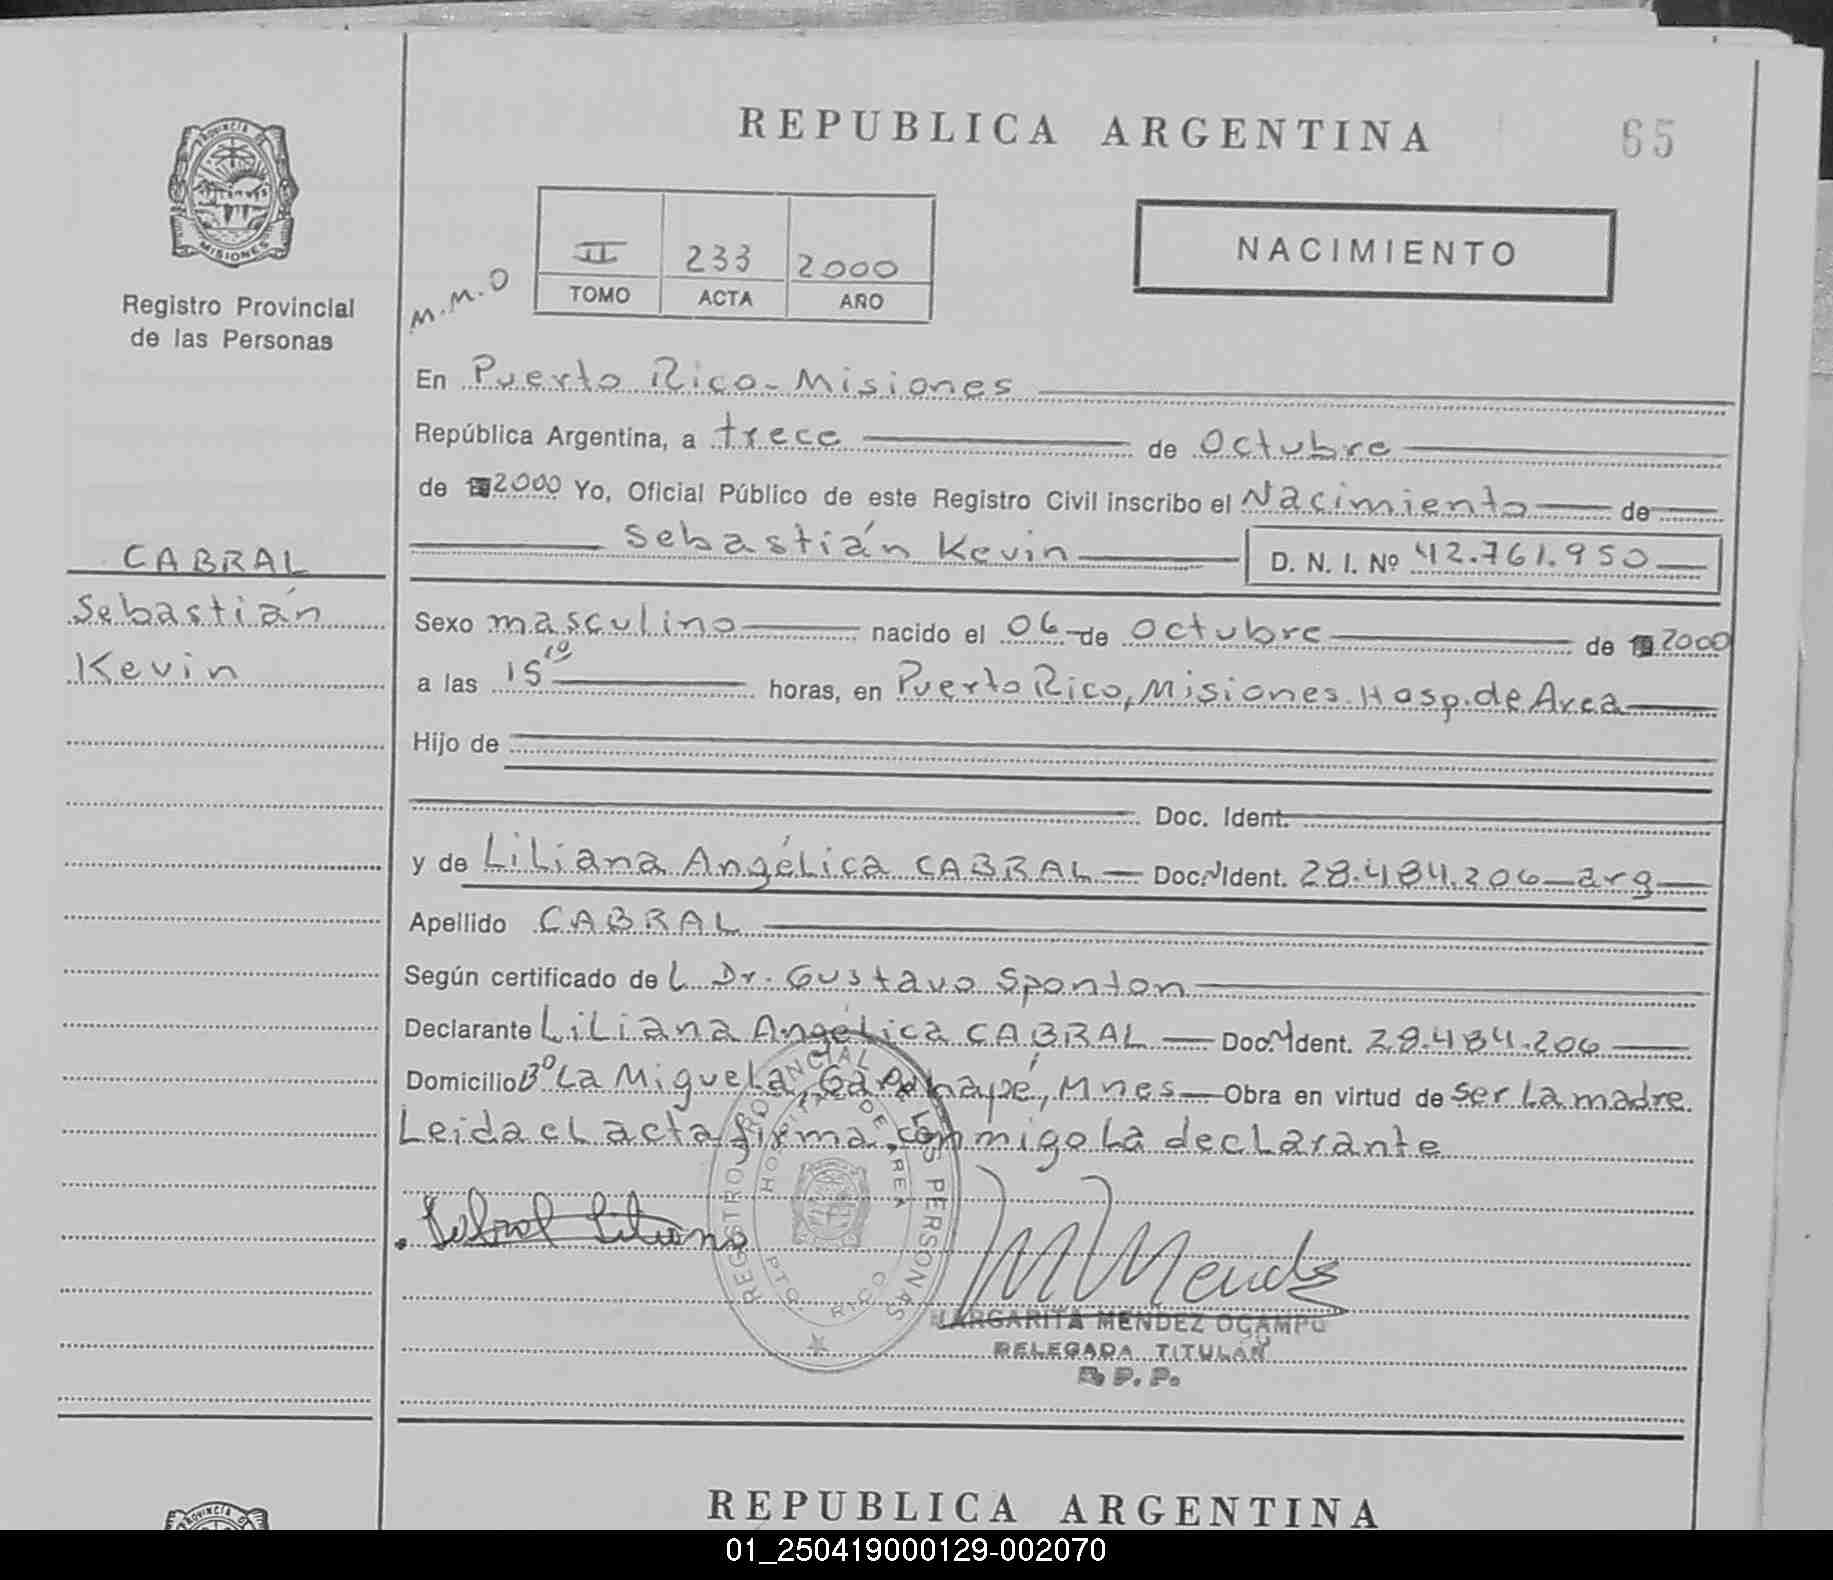 REPUBLICA ARGENTINA
65
PROVINCIA DE
MISIONES
Registro Provincial
de las Personas
M.M.O
II 233 2000
TOMO ACTA AÑO
NACIMIENTO
En Puerto Rico - Misiones
República Argentina, a trece de Octubre
de 2000 Yo, Oficial Público de este Registro Civil inscribo el Nacimiento de
Sebastián Kevin D. N. I. Nº 42.761.950
CABRAL
Sebastián
Kevin
Sexo masculino nacido el 06 de Octubre de 2000
a las 15 10 horas, en Puerto Rico, Misiones. Hosp. de Area
Hijo de
Doc. Ident.
y de Liliana Angélica CABRAL Doc. N Ident. 28.484.206 arg
Apellido CABRAL
Según certificado de L Dr. Gustavo Sponton
Declarante Liliana Angélica CABRAL Doc. N Ident. 28.484.206
Domicilio Bº La Miguela, Garuhapé, Mnes Obra en virtud de ser la madre.
Leida el acta firma conmigo la declarante
REGISTRO PROVINCIAL DE LAS PERSONAS
HOSPITAL DE AREA
PTO. RICO
Cabral Liliana
MMendz
MARGARITA MENDEZ OCAMPO
DELEGADA TITULAR
R. P. P.
REPUBLICA ARGENTINA
PROVINCIA D
01_250419000129-002070